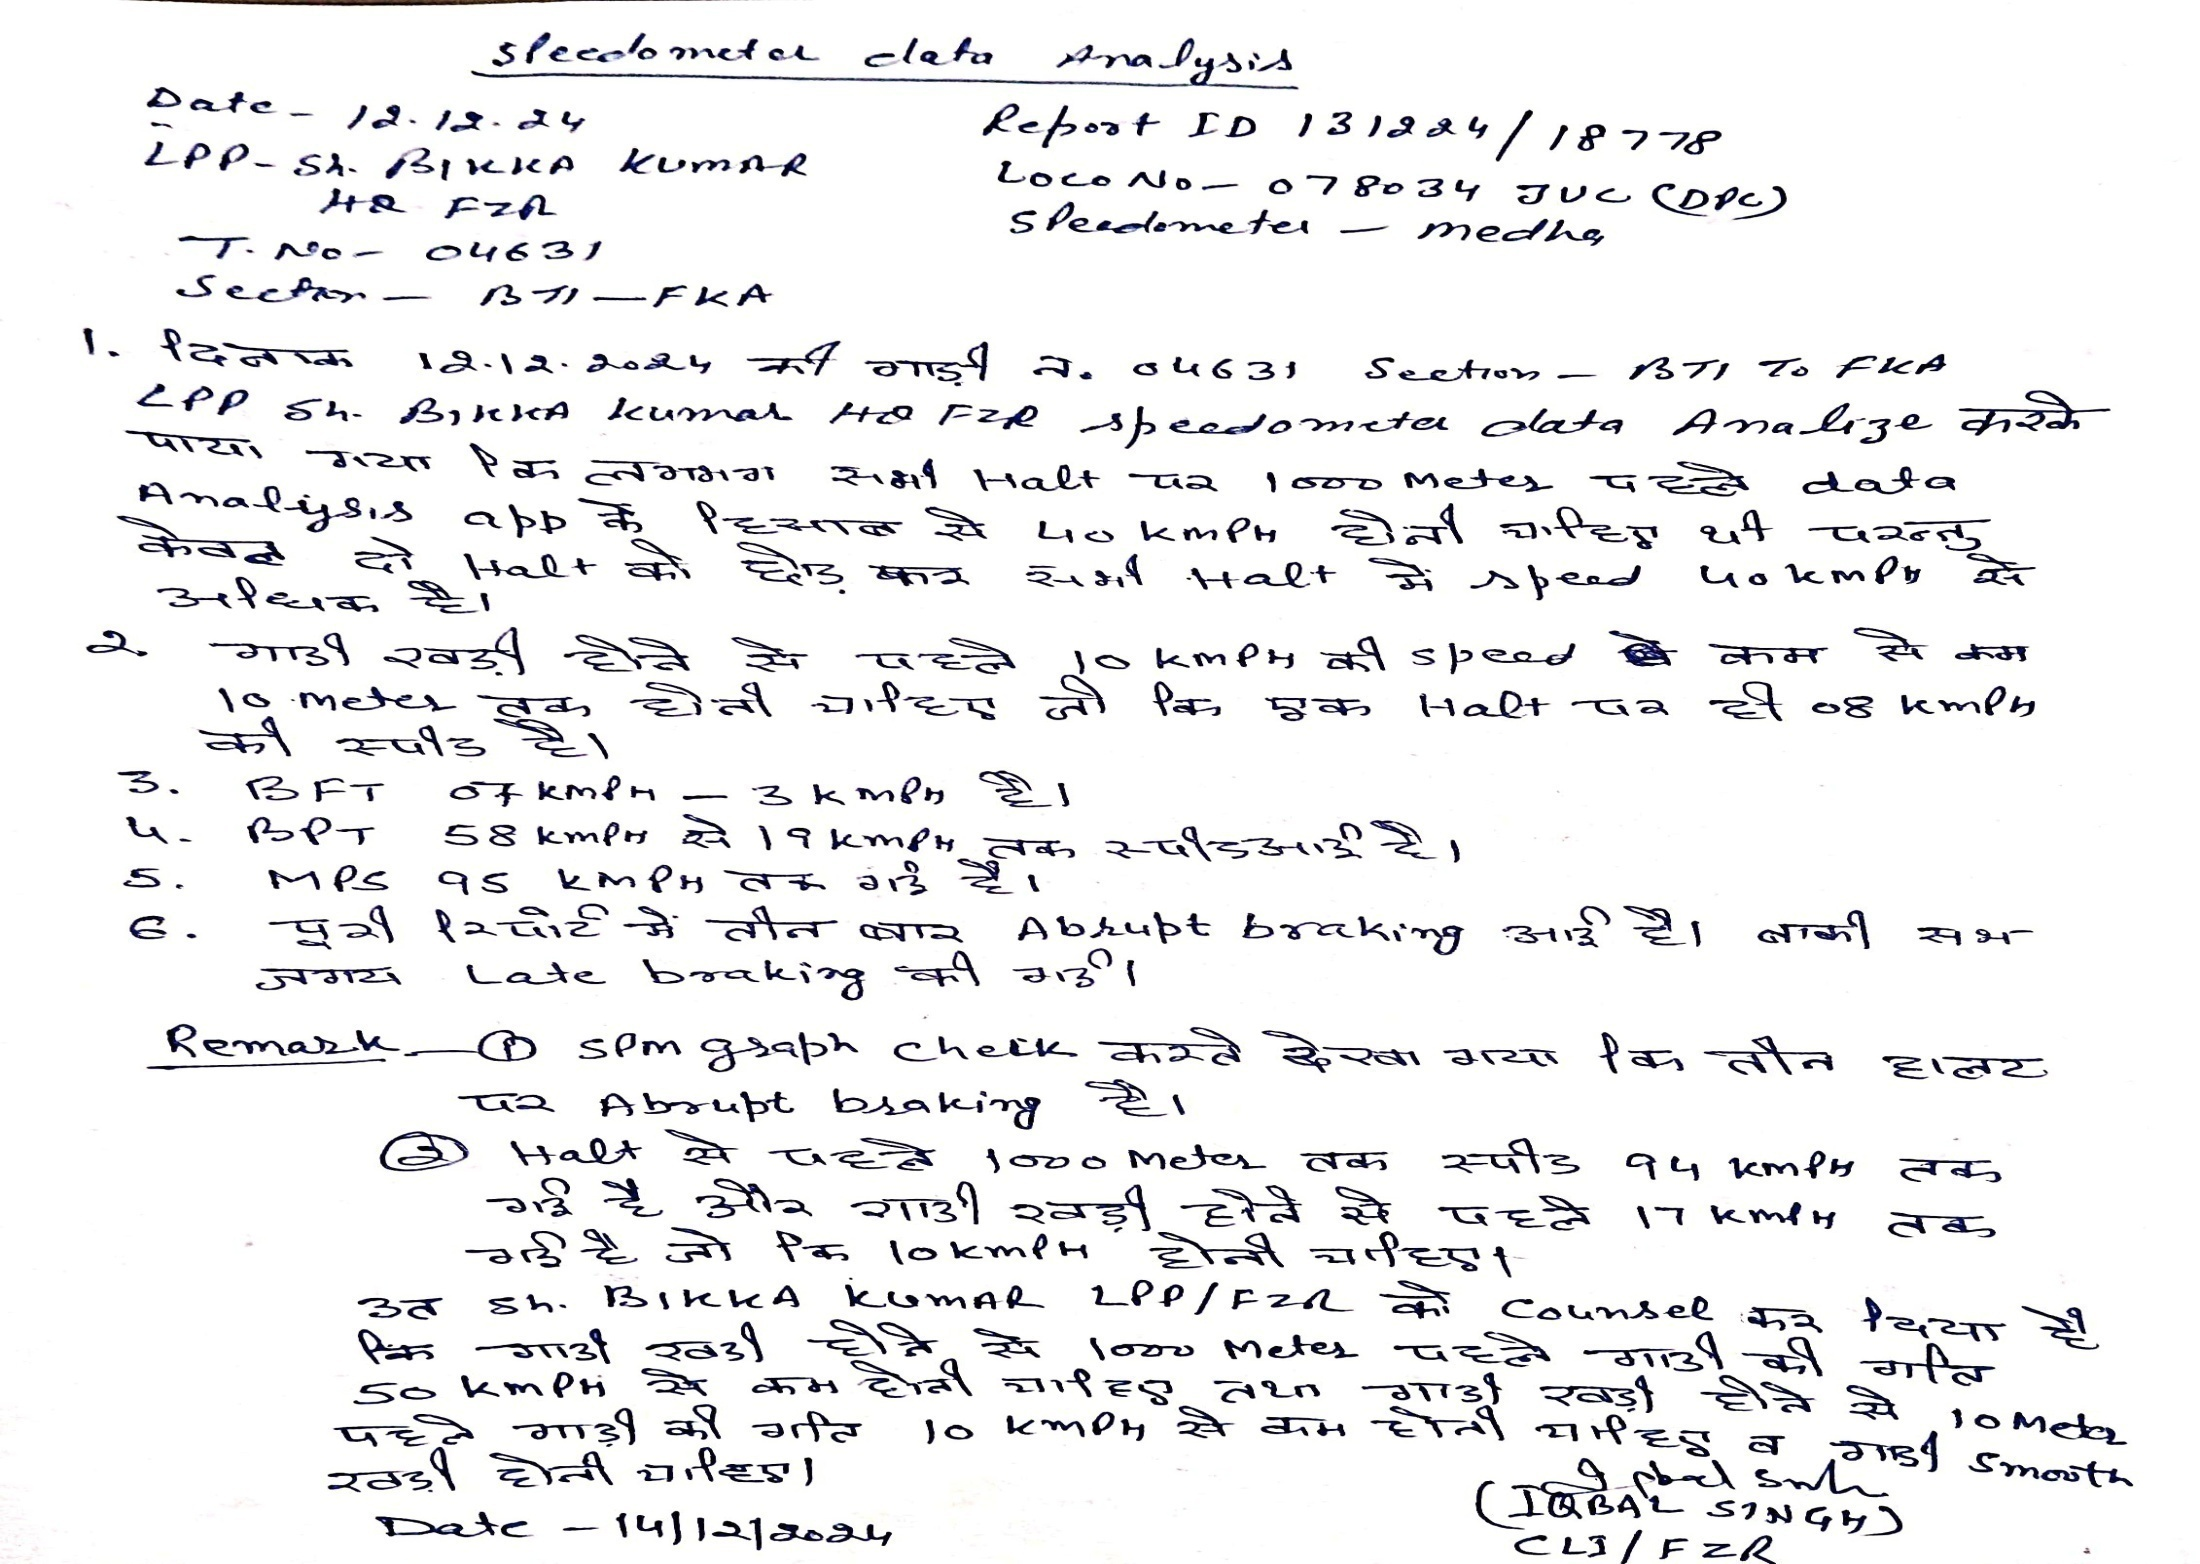 Speedometer data Analysis
Date - 12.12.24
Report ID 131224/18778
LPP - Sh. BIKKA KUMAR
Loco No - 078034 JUC (DPC)
HQ FZR
Speedometer - medha
T. No - 04631
Section - BTI - FKA
1. दिनांक 12.12.2024 की गाड़ी नं. 04631 Section - BTI To FKA
LPP Sh. BIKKA Kumar HQ FZR speedometer data Analize करके
पाया गया कि लगभग सभी Halt पर 1000 Meter पहले data
Analysis app के हिसाब से 40 KMPH होनी चाहिए थी परन्तु
केवल दो Halt को छोड़ कर सभी Halt में speed 40 kmph से
अधिक है।
2. गाडी खड़ी होने से पहले 10 KMPH की speed कम से कम
10 meter तक होनी चाहिए जो कि एक Halt पर ही 08 kmph
की स्पीड है।
3. BFT 07 KMPH - 3 Kmph है।
4. BPT 58 kmph से 19 KMPH तक स्पीड आई है।
5. MPS 95 KMPH तक गई है।
6. पूरी रिपोर्ट में तीन बार Abrupt braking आई है। बाकी सभ
जगय Late braking की गई।
Remark - ① SPM graph check करते देखा गया कि तीन हालट
पर Abrupt braking है।
② Halt से पहले 1000 Meter तक स्पीड 94 KMPH तक
गई है और गाडी खड़ी होने से पहले 17 KMPH तक
गई है जो कि 10 KMPH होनी चाहिए।
उत Sh. BIKKA KUMAR LPP/FZR को Counsel कर दिया है
कि गाडी खडी होने से 1000 Meter पहले गाडी की गति
50 KMPH से कम होनी चाहिए तथा गाडी खड़ी होने से 10 Meter
पहले गाड़ी की गति 10 KMPH से कम होनी चाहिए व गाडी Smooth
खड़ी होनी चाहिए।
Iqbal Singh
(IQBAL SINGH)
Date - 14/12/2024
CLI/FZR